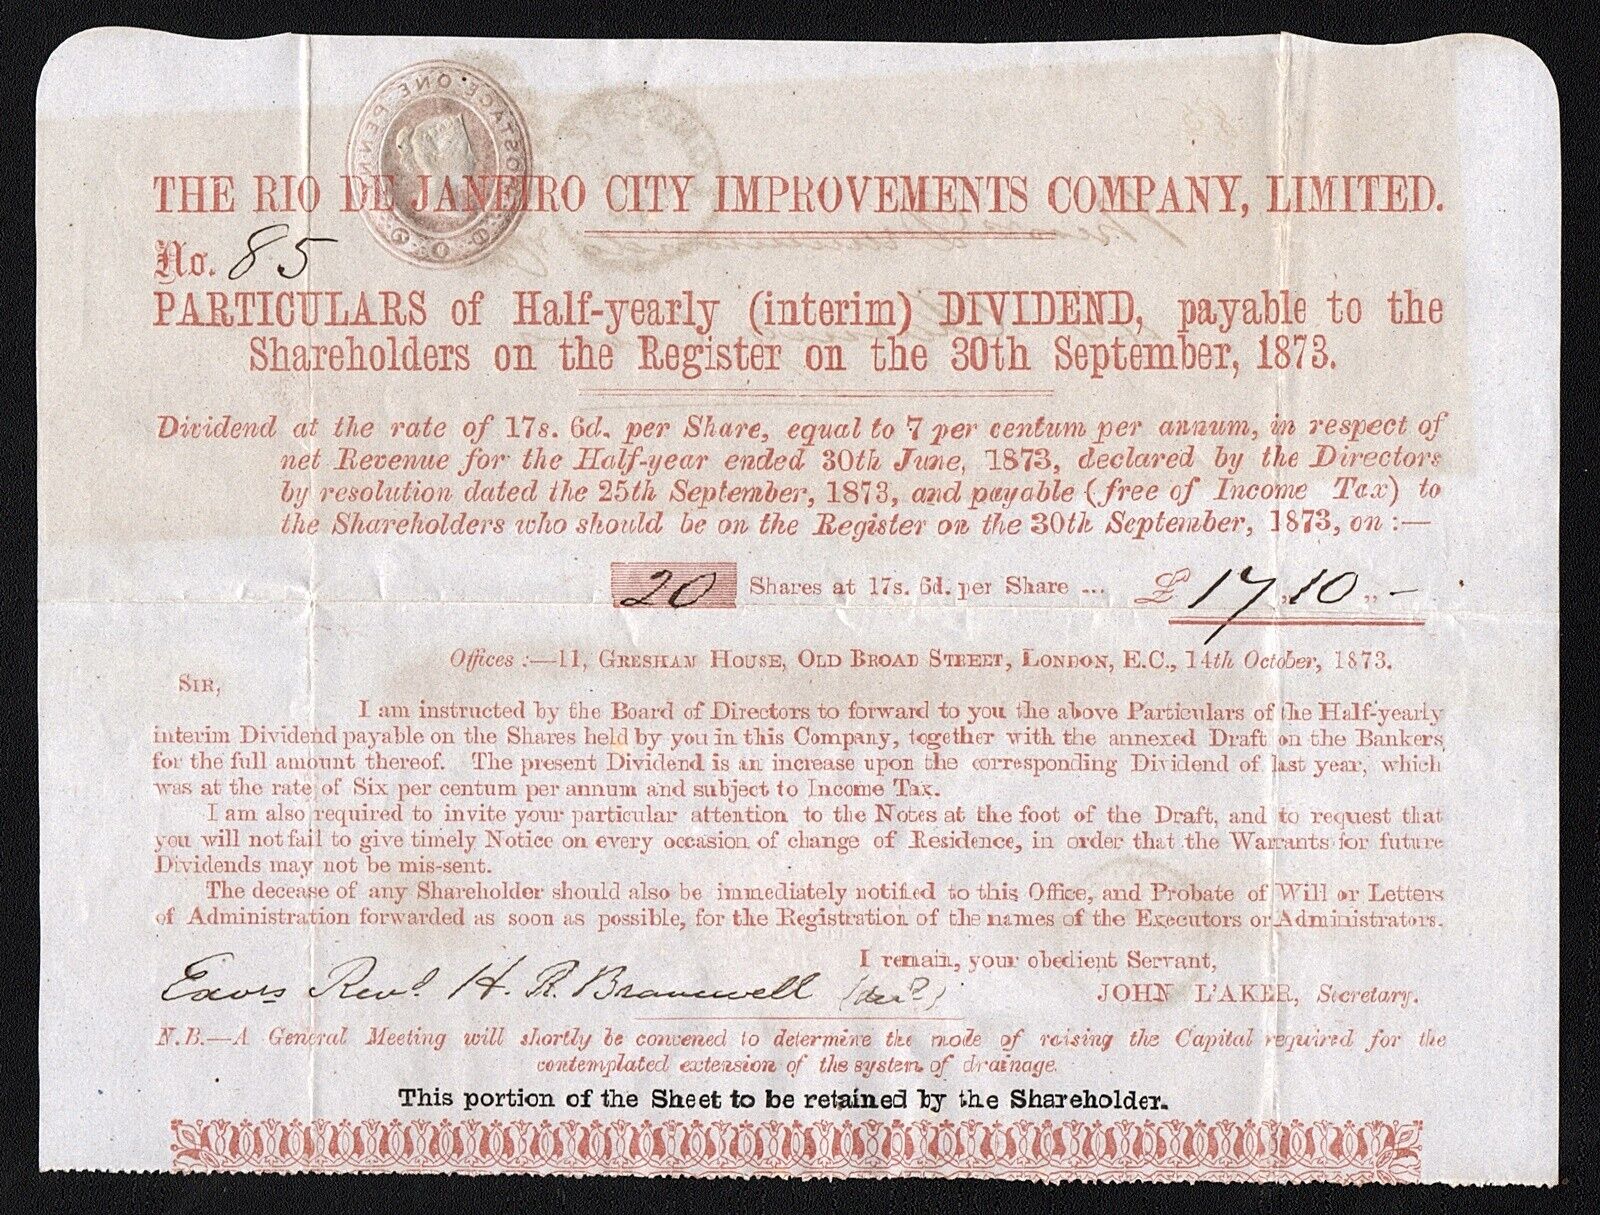 THE RIO DE JANEIRO CITY IMPROVEMENTS COMPANY, LIMITED.
No. 85
PARTICULARS of Half-yearly (interim) DIVIDEND, payable to the
Shareholders on the Register on the 30th September, 1873.
Dividend at the rate of 17s. 6d. per Share, equal to 7 per centum per annum, in respect of
net Revenue for the Half-year ended 30th June, 1873, declared by the Directors
by resolution dated the 25th September, 1873, and payable (free of Income Tax) to
the Shareholders who should be on the Register on the 30th September, 1873, on :—
20 Shares at 17s. 6d. per Share ... £17,,10,,-
Offices :—11, GRESHAM HOUSE, OLD BROAD STREET, LONDON, E.C., 14th October, 1873.
SIR,
I am instructed by the Board of Directors to forward to you the above Particulars of the Half-yearly
interim Dividend payable on the Shares held by you in this Company, together with the annexed Draft on the Bankers
for the full amount thereof. The present Dividend is an increase upon the corresponding Dividend of last year, which
was at the rate of Six per centum per annum and subject to Income Tax.
I am also required to invite your particular attention to the Notes at the foot of the Draft, and to request that
you will not fail to give timely Notice on every occasion of change of Residence, in order that the Warrants for future
Dividends may not be mis-sent.
The decease of any Shareholder should also be immediately notified to this Office, and Probate of Will or Letters
of Administration forwarded as soon as possible, for the Registration of the names of the Executors or Administrators.
I remain, your obedient Servant,
Exors Revd. H. R. Bramwell (decd.)
JOHN L'AKER, Secretary.
N.B.—A General Meeting will shortly be convened to determine the mode of raising the Capital required for the
contemplated extension of the system of drainage.
This portion of the Sheet to be retained by the Shareholder.